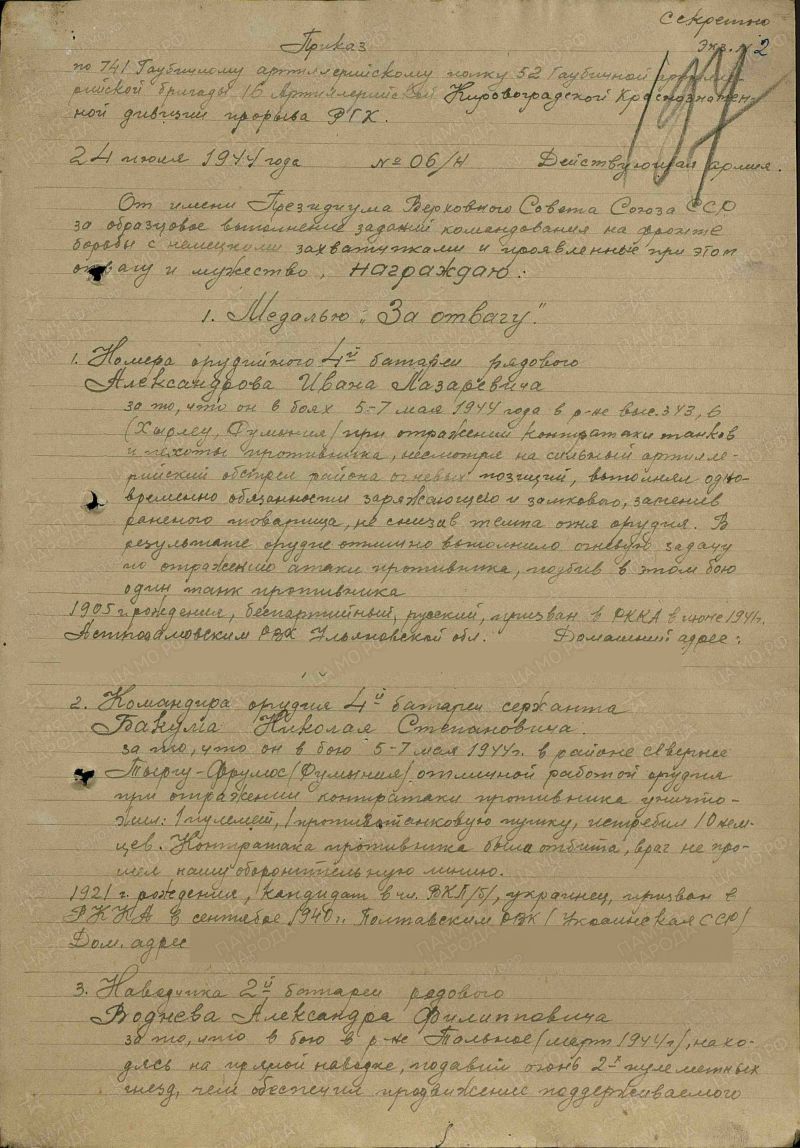 Секретно
Экз. № 2
197
Приказ
по 741 Гаубичному артиллерийскому полку 52 Гаубичной артилле-
рийской бригады 16 Артиллерийской Кировоградской Краснознамен-
ной дивизии прорыва РГК.
24 июля 1944 года № 06/н Действующая армия.
От имени Президиума Верховного Совета Союза ССР
за образцовое выполнение заданий командования на фронте
борьбы с немецкими захватчиками и проявленные при этом
отвагу и мужество, награждаю:
1. Медалью „За отвагу".
1. Номера орудийного 4й батареи рядового
Александрова Ивана Лазаревича
за то, что он в боях 5-7 мая 1944 года в р-не выс. 343,6
(Хырлеу, Румыния) при отражении контратаки танков
и пехоты противника, несмотря на сильный артилле-
рийский обстрел района огневых позиций, выполнял одно-
временно обязанности заряжающего и замкового, заменив
раненого товарища, не снизив темпа огня орудия. В
результате орудие отлично выполнило огневую задачу
по отражению атаки противника, подбив в этом бою
один танк противника
1905 г. рождения, беспартийный, русский, призван в РККА в июне 1941г.
Астрадамовским РВК Ульяновской обл. Домашний адрес:
2. Командира орудия 4й батареи сержанта
Бакума Николая Степановича.
за то, что он в бою 5-7 мая 1944г. в районе севернее
Тыргу-Фрумос (Румыния) отличной работой орудия
при отражении контратаки противника уничто-
жил: 1 пулемет, 1 противотанковую пушку, истребил 10 нем-
цев. Контратака противника была отбита, враг не про-
шел нашу оборонительную линию.
1921 г. рождения, кандидат в чл. ВКП/б/, украинец, призван в
РККА в сентябре 1940г. Полтавским РВК (Украинская ССР)
Дом. адрес
3. Наводчика 2й батареи рядового
Воднева Александра Филипповича
за то, что в бою в р-не Тальное (март 1944г), нахо-
дясь на прямой наводке, подавил огонь 2-х пулеметных
гнезд, чем обеспечил продвижение поддерживаемого